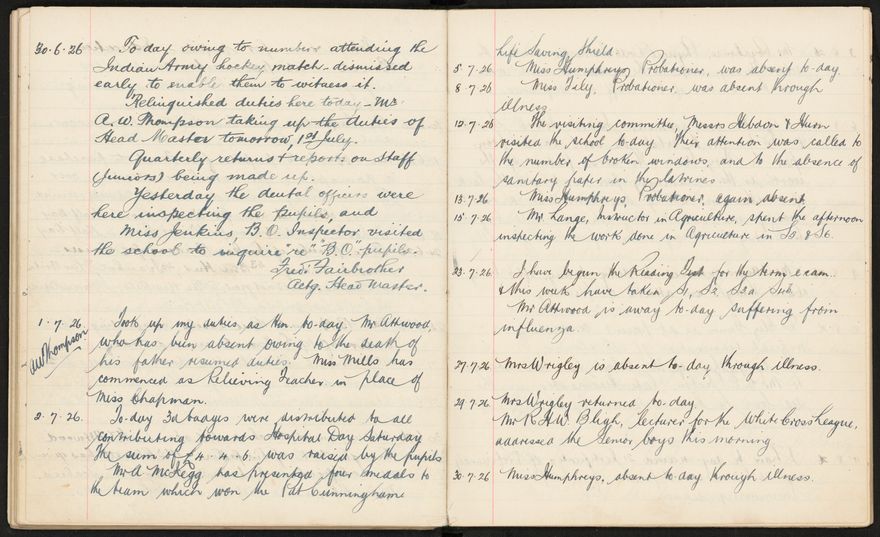 30.6.26 To day owing to numbers attending the
Indian Army hockey match dismissed
early to enable them to witness it.
Relinquished duties here today - Mr
A. W. Thompson taking up the duties of
Head Master tomorrow, 1st July.
Quarterly returns & reports on Staff
(juniors) being made up.
Yesterday the dental officers were
here inspecting the pupils, and
Miss Jenkins, B.O. Inspector visited
the school to inquire "re" "B.O." pupils.
Fred. Fairbrother
Actg. Head Master.
1.7.26 Took up my duties as Hm. to-day. Mr Attwood,
AWThompson
who has been absent owing to the death of
his father resumed duties. Miss Mills has
commenced as Relieving Teacher in place of
Miss Chapman.
2.7.26. To-day 3d badges were distributed to all
contributing towards Hospital Day Saturday
The sum of £4.4.6 was raised by the pupils
Mr A McKegg has presented four medals to
the team which won the Pat Cunninghame
Life Saving Shield.
5.7.26 Miss Humphreys, Probationer, was absent to-day
8.7.26 Miss Tily, Probationer was absent through
illness
12.7.26 The visiting committee, Messrs Hebdon & Hurn
visited the school to-day. Their attention was called to
the number of broken windows, and to the absence of
sanitary paper in the latrines
13.7.26 Miss Humphreys, Probationer, again absent
15.7.26 Mr Lange, Instructor in Agriculture, spent the afternoon
inspecting the work done in Agriculture in S5. & S6.
23.7.26 I have begun the Reading Test for the term exam.
& this week have taken S1, S2 S3a
Mr Attwood is away to-day suffering from
influenza
27.7.26 Mrs Wrigley is absent to-day through illness.
29.7.26 Mrs Wrigley returned to-day
Mr R.H.W. Bligh, lecturer for the White Cross League,
addressed the Senior boys this morning
30.7.26 Miss Humphreys, absent to-day through illness.